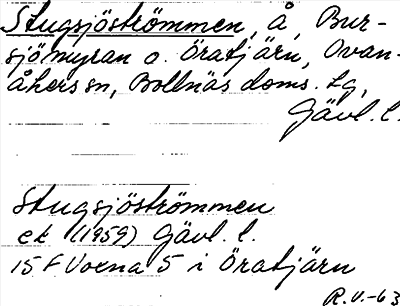 Stugsjöströmmen, å, Bur-
sjömyran o. Öratjärn, Ovan-
åkers sn, Bollnäs doms. tg,
Gävl. l.
Stugsjöströmmen
ek (1959) Gävl. l.
15 F Voxna 5 i Öratjärn
R.V.-63